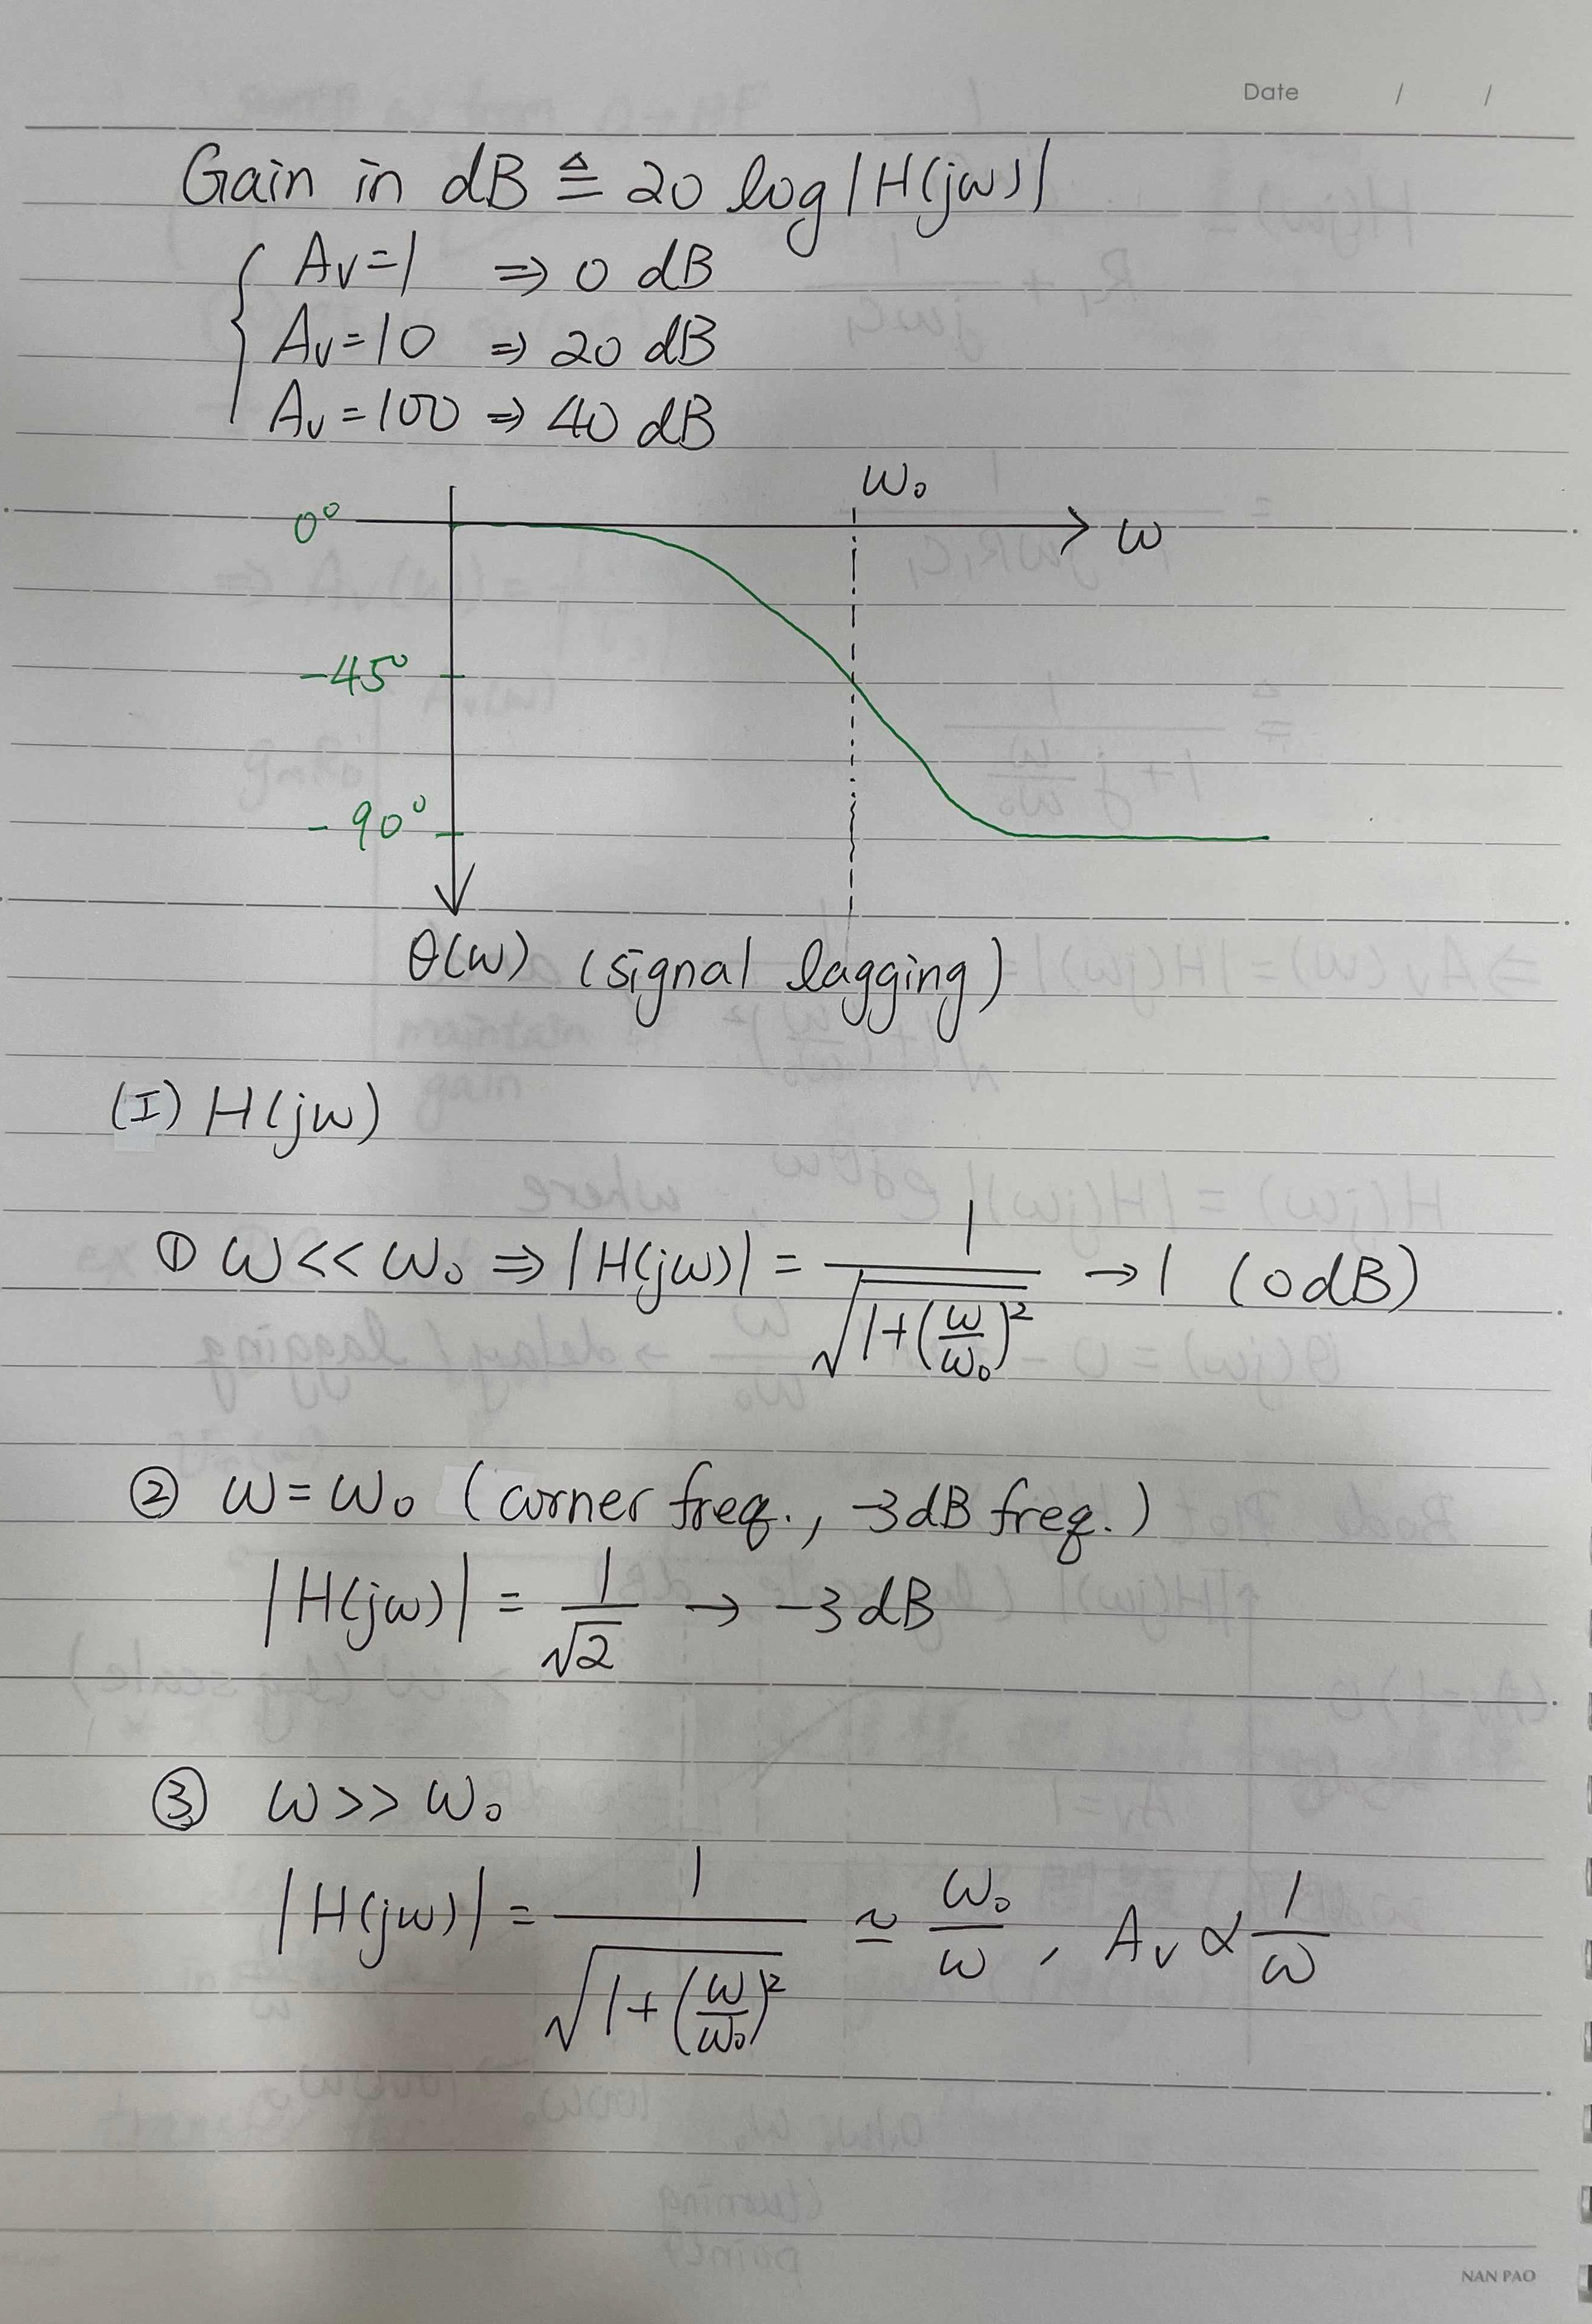 Date / /
Gain in dB ≜ 20 log|H(jω)|
Av=1 ⇒ 0 dB
Av=10 ⇒ 20 dB
Av=100 ⇒ 40 dB
ω₀
0° ω
-45°
-90°
θ(ω) (signal lagging)
(I) H(jω)
① ω<<ω₀ ⇒ |H(jω)| = 1/√(1+(ω/ω₀)²) → 1 (0dB)
② ω=ω₀ (corner freq., -3dB freq.)
|H(jω)| = 1/√2 → -3dB
③ ω>>ω₀
|H(jω)| = 1/√(1+(ω/ω₀)²) ≃ ω₀/ω, Av ∝ 1/ω
NAN PAO